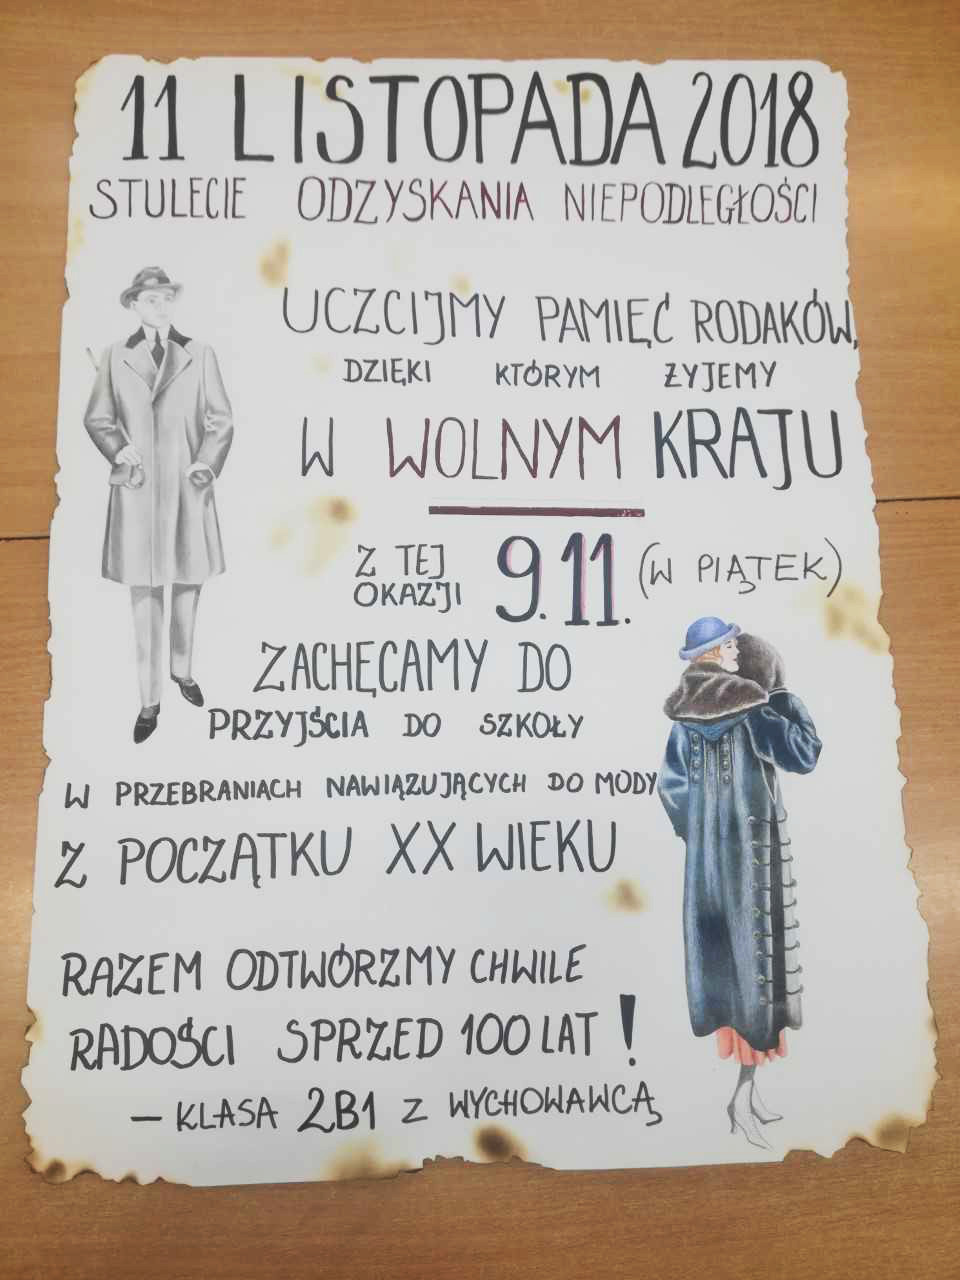 11 LISTOPADA 2018
STULECIE ODZYSKANIA NIEPODLEGŁOŚCI
UCZCIJMY PAMIĘĆ RODAKÓW,
DZIĘKI KTÓRYM ŻYJEMY
W WOLNYM KRAJU
Z TEJ
OKAZJI 9.11. (W PIĄTEK)
ZACHĘCAMY DO
PRZYJŚCIA DO SZKOŁY
W PRZEBRANIACH NAWIĄZUJĄCYCH DO MODY
Z POCZĄTKU XX WIEKU
RAZEM ODTWÓRZMY CHWILE
RADOŚCI SPRZED 100 LAT!
– KLASA 2B1 Z WYCHOWAWCĄ